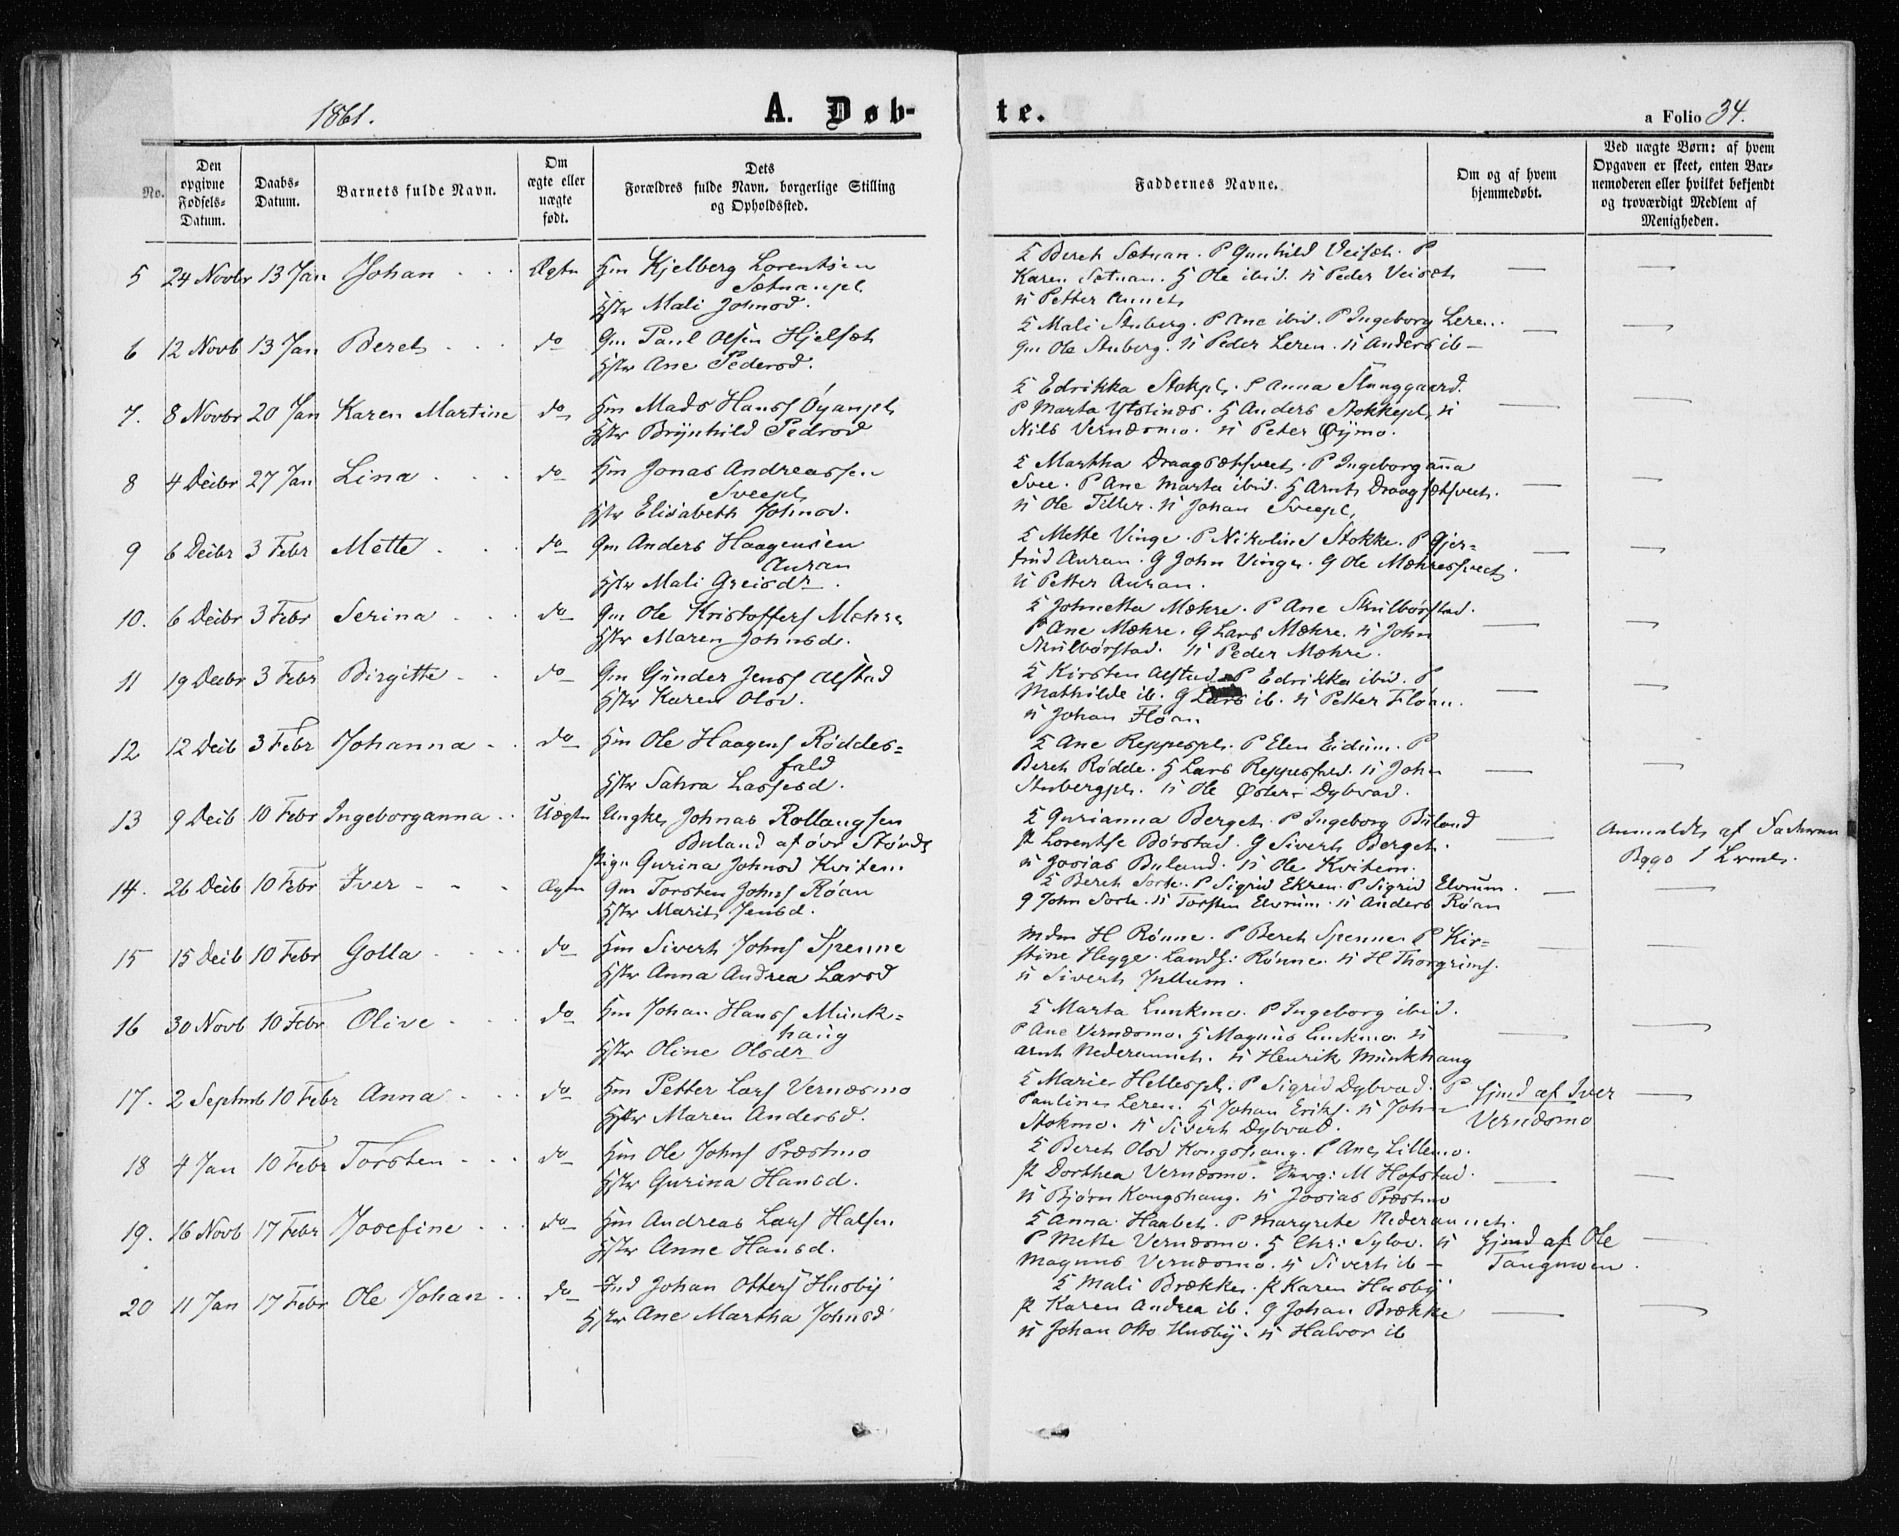 1861.
A. Døb-
te.
a Folio 34.
No.
Den opgivne Fødsels-Datum.
Daabs-Datum.
Barnets fulde Navn.
Om ægte eller uægte født.
Dets Forældres fulde Navn, borgerlige Stilling og Opholdssted.
Faddernes Navne.
Om og af hvem hjemmedøbt.
Ved uægte Børn: af hvem Opgaven er skeet, enten Barnemoderen eller hvilket bekjendt og troværdigt Medlem af Menigheden.
5 24 Novbr 13 Jan Johan Ægte Hm Kjelberg Lorentsen
Sætnanpl.
Hstr Mali Johnsd.
K Beret Sætnan. P Gunhild Veiseth. P
Karen Sætnan. G Ole ibid. U Peder Veiseth
U Petter Annet
6 12 Novb 13 Jan Beret do Gm Paul Olsen Hjelseth
Hstr Ane Pedersd.
K Mali Stuberg. P Ane ibid. P Ingeborg Leren.
Gm Ole Stuberg. U Peder Leren. U Anders ib
7. 8 Novbr 20 Jan Karen Martine do Hm Mads Hans Øyanpl
Hstr Brynhild Pedrsd
K Edrikka Stokpl. P Anna
P Marta Ytstines. G Anders Stokkepl, U
Nils Vernæsmo. U Peter Øymo.
8 4 Decbr 27 Jan Lina do Hm Jonas Andreassen
Sveepl
Hstr Elisabeth Johnsd.
K Martha Draagsethsveet. P Ingeborganna
Svee. P Ane Marta ibid. G Arnt Draagsetsveet.
U Ole Tiller. U Johan Sveepl,
9 6 Decbr 3 Febr Mette do Gm Anders Haagensen
Auran
Hstr Mali Greisdr
K Mette Vinge. P Nikoline Stokke. P Gjer-
trud Auran. G John Vinge. G Ole Mæhresveet.
U Petter Auran.
10. 6 Decbr 3 Febr Serina do Gm Ole Kristoffers Mæhre
Hstr Maren Johnsd.
K Johnetta Mæhre. P Ane Skulbørstad.
P Ane Mæhre. G Lars Mæhre. U John
Skulbørstad. U Peder Mæhre.
11 19 Decbr 3 Febr Birgitte do Gm Gunder Jens Alstad
Hstr Karen Olsd.
K Kirsten Alstad. P Edrikka ibid. P
Mathilde ib. G Lars ib. U Petter Fløan.
U Johan Fløan
12 12 Decb 3 Febr Johanna do Hm Ole Haagens Røddes=
fald
Hstr Sahra Lassesd.
K Ane Reppespl. P Elen Eidum. P
Beret Rødde. G Lars Reppesfald. U John
Stubergpl. U Ole Øster Dybvad.
13 9 Decb 10 Febr Ingeborganna Uægte Ungk Johnas Rollaugsen
Buland af øvr Størdl
Pige Gurina Johnsd Kvitem.
K Gurianna Berget. P Ingeborg Buland
P Lorentse Børstad. G Sivert Berget.
U Josias Buland. U Ole Kvitem.
Anmeldt af Faderen
14. 26 Decb 10 Febr Iver Ægte Gm Torsten Johns Røan
Hstr Marit Jensd.
K Beret Sorte. P Sigrid Ekren. P Sigrid Elvrum.
G John Sorte. U Torsten Elvrum. U Anders Røan
15 15 Decb 10 Febr Golla do Hm Sivert Johns Spenne
Hstr Anna Andrea Larsd
Mdm H Rønne. P Beret Spenne P Kir=
stine Hegge. Landh: Rønne. U H Thorgrims.
U Sivert Julum.
16 30 Novb 10 Febr Olive do Hm Johan Hans Munk=
haug
Hstr Oline Olsdr
K Marta Lunkmo. P Ingeborg ibid.
P Ane Vernæsmo. G Magnus Lunkmo. U
Arnt Nederaunet. U Henrik Munkhaug
17. 2 Septmb 10 Febr Anna do Hm Petter Lars Vernæsmo
Hstr Maren Andersd.
K Marie Hellespl. P Sigrid Dybvad. P
Pauline Leren. G Johan Eriks. U John
Stokmo. U Sivert Dybvad.
Hjmd af Iver
Vernæsmo
18 4 Jan 10 Febr Torsten do Hm Ole Johns Præstmo
Hstr Gurina Hansd.
K Beret Olsd Kongshaug. P Ane Lillemo.
P Dorthea Vernæsmo. M Hofstad.
U Bjørn Kongshaug. U Josias Præstmo
19. 16 Novb 17 Febr Josefine do Hm Andreas Lars Halsen
Hstr Anne Hansd.
K Anna Haabet. P Margrete Nederaunet.
P Mette Vernæsmo. G Chr: Sylv. U
Magnus Vernæsmo. U Sivert ib
Hjmd af Ole
Tangmoen.
20 11 Jan 17 Febr Ole Johan do Ind Johan Otters Husby
Hstr Ane Martha Johnsd
K Mali Brække. P Karen Husby
P Karen Andrea ib. G Johan Brække
U Johan Otto Husby. U Halvor ib